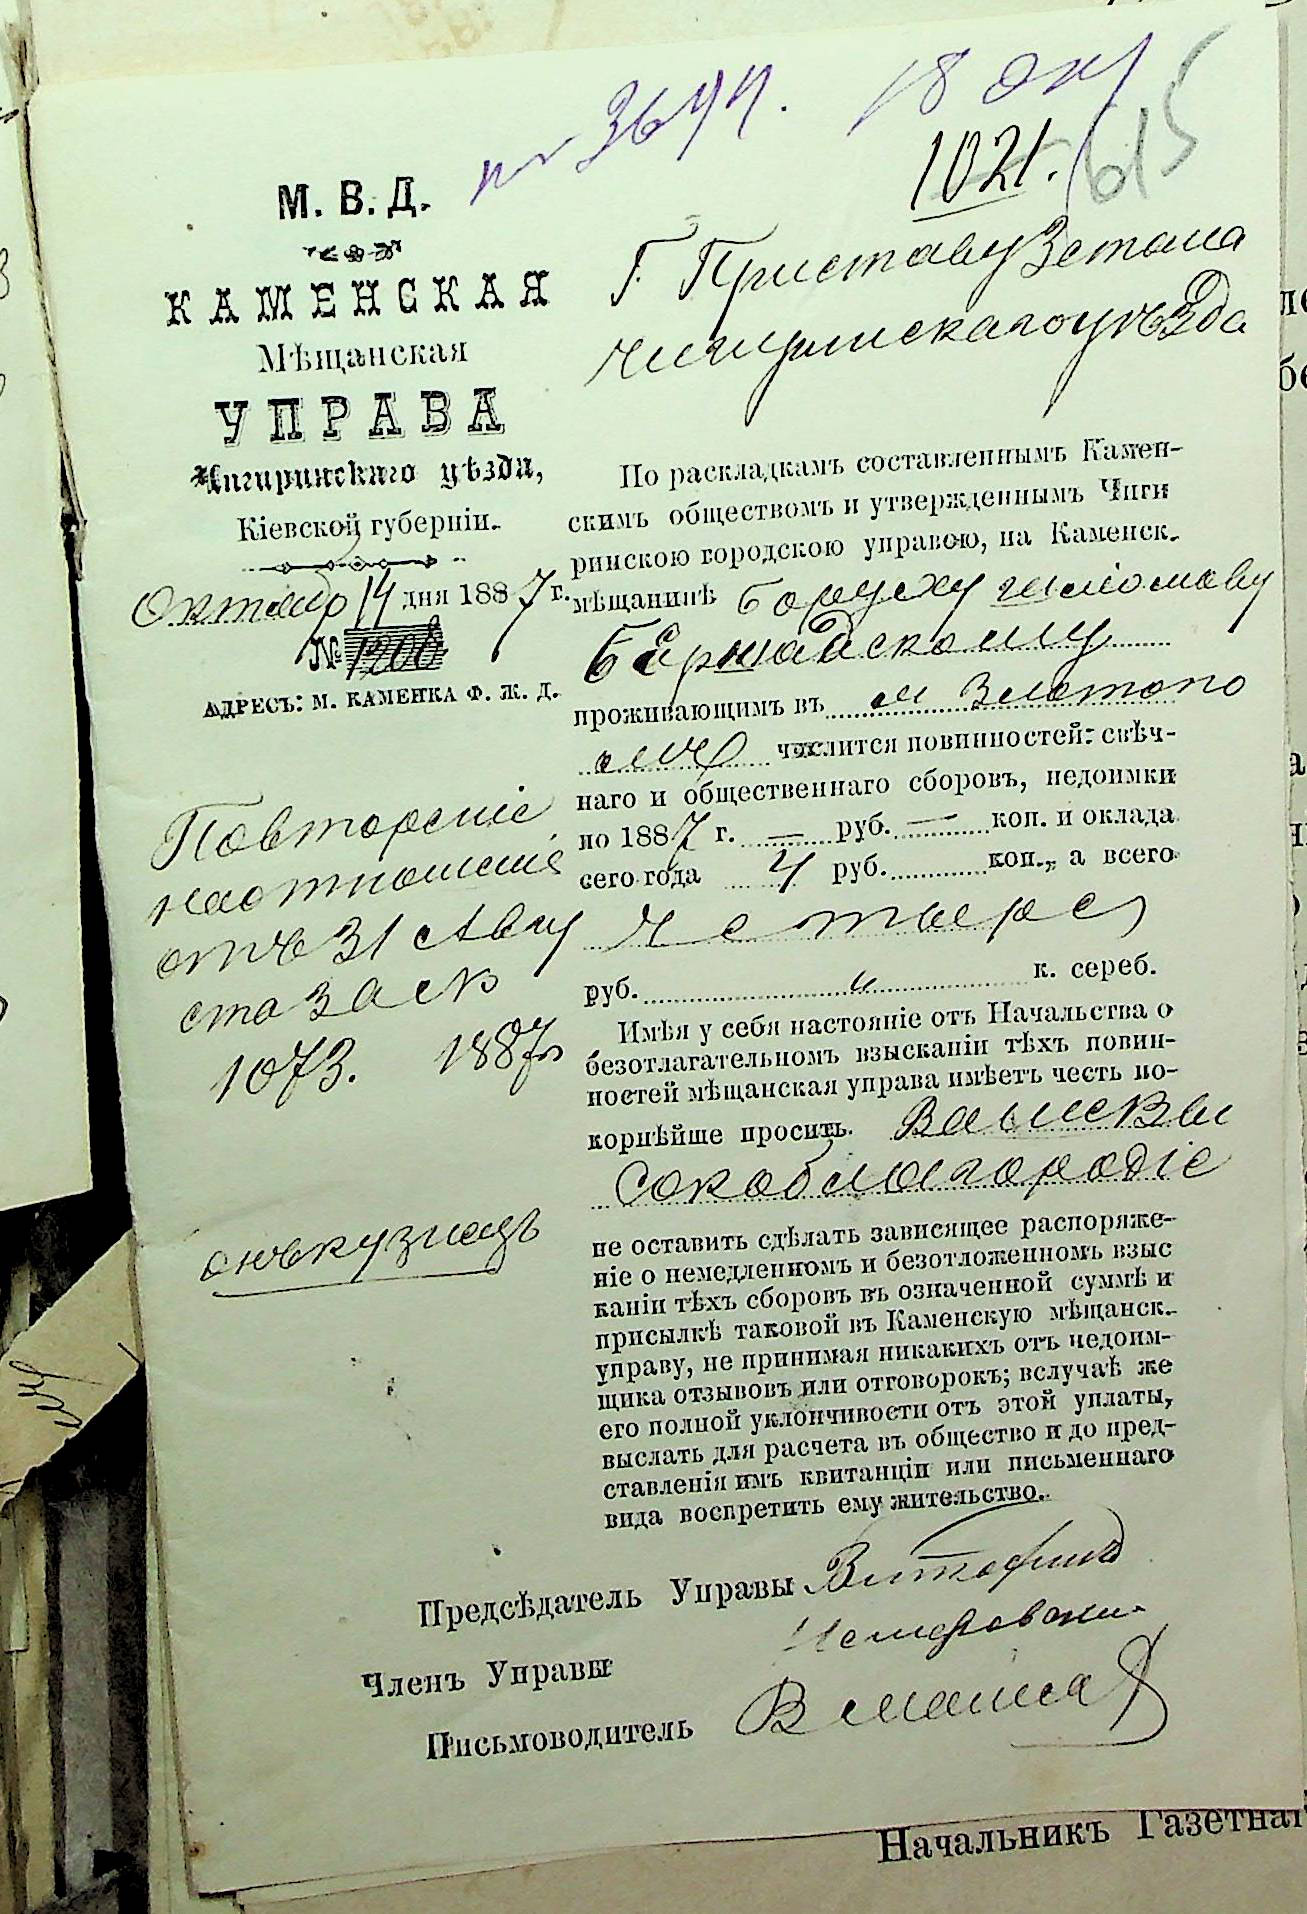 № 3644. 18 Окт
1021. 615
М. В. Д.
КАМЕНСКАЯ
Мѣщанская
УПРАВА
Чигиринскаго уѣзда,
Кіевской губерніи.
Октябр 14 дня 1887 г.
№ 1206
АДРЕСЪ: М. КАМЕНКА Ф. Ж. Д.
Повтореніе
на отношеніе
отъ 31 Авгу
ста за №
1073. 1887 г
онъ кузнецъ
Г. Приставу 3 стана
Чигиринскаго уѣзда
По раскладкамъ составленнымъ Камен-
скимъ обществомъ и утвержденнымъ Чиги
ринскою городскою управою, на Каменск.
мѣщанинѣ Боруху
Бершадскому
проживающимъ въ м Златопо
лѣ числится повинностей: свѣч-
наго и общественнаго сборовъ, недоимки
по 1887 г. — руб. — коп. и оклада
сего года 4 руб. коп., а всего
Четыре
руб. к. сереб.
Имѣя у себя настояніе отъ Начальства о
безотлагательномъ взысканіи тѣхъ повин-
ностей мѣщанская управа имѣетъ честь по-
корнѣйше просить. Ваше Вы
сокоблагородіе
не оставить сдѣлать зависящее распоряже-
ніе о немедленномъ и безотложенномъ взыс
каніи тѣхъ сборовъ въ означенной суммѣ и
присылкѣ таковой въ Каменскую мѣщанск.
управу, не принимая никакихъ отъ недоим-
щика отзывовъ или отговорокъ; вслучаѣ же
его полной уклончивости отъ этой уплаты,
выслать для расчета въ общество и до пред-
ставленія имъ квитанціи или письменнаго
вида воспретить ему жительство.
Предсѣдатель Управы
Членъ Управы
Письмоводитель
Начальникъ Газетнаг